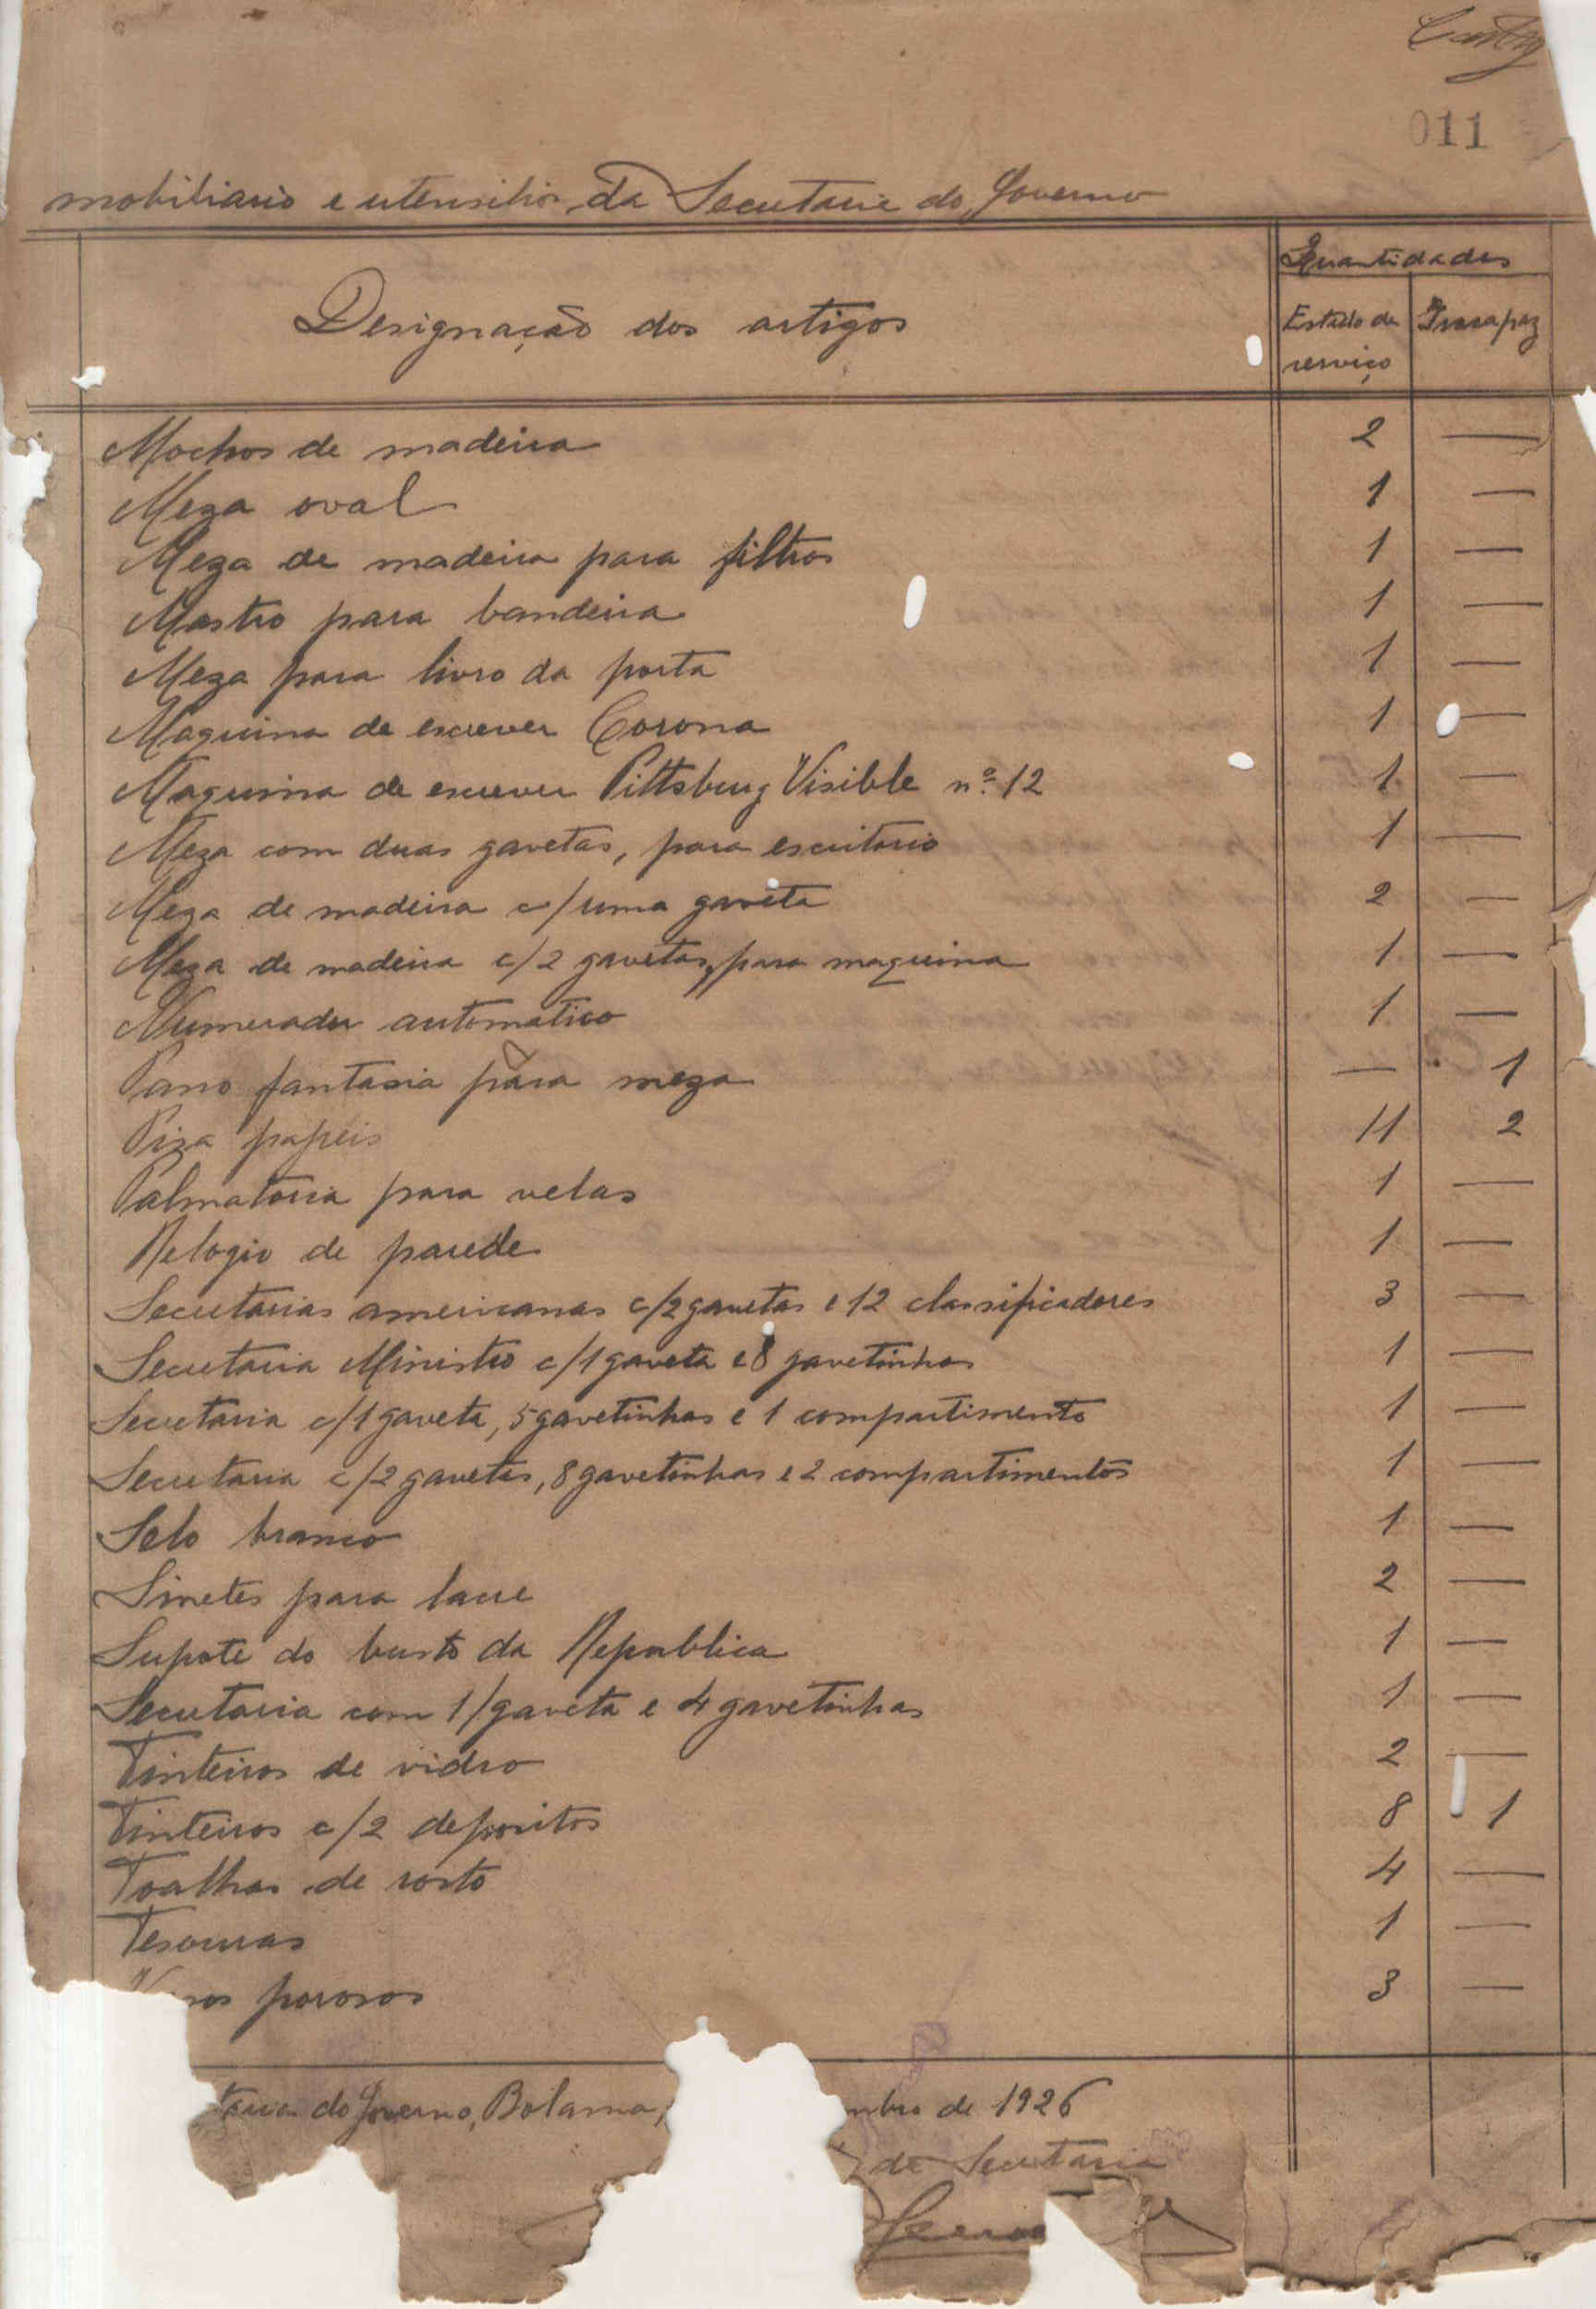 011
mobiliario e utensilios da Secretaria do Governo
Quantidades
Designação dos artigos
Estado de serviço
Incapaz
Mochos de madeira 2 —
Meza oval 1 —
Meza de madeira para filtros 1 —
Mastro para bandeira 1 —
Meza para livro da porta 1 —
Maquina de escrever Corona 1 —
Maquina de escrever Pittsburg Visible nº 12 1 —
Meza com duas gavetas, para escritorio 1 —
Meza de madeira c/ uma gaveta 2 —
Meza de madeira c/2 gavetas, para maquina 1 —
Numerador automatico 1 —
Pano fantasia para meza — 1
Piza papeis 11 2
Palmatoria para velas 1 —
Relogio de parede 1 —
Secretarias americanas c/2 gavetas e 12 classificadores 3 —
Secretaria Ministro c/1 gaveta e 8 gavetinhas 1 —
Secretaria c/1 gaveta, 5 gavetinhas e 1 compartimento 1 —
Secretaria c/2 gavetas, 8 gavetinhas e 2 compartimentos 1 —
Selo branco 1 —
Sinetes para lacre 2 —
Supote do busto da Republica 1 —
Secretaria com 1/gaveta e 4 gavetinhas 1 —
Tinteiros de vidro 2 —
Tinteiros c/2 depositos 8 1
Toalhas de rosto 4 —
Tesouras 1 —
porosos 3 —
taria do Governo, Bolama, mbro de 1926
de Secretaria